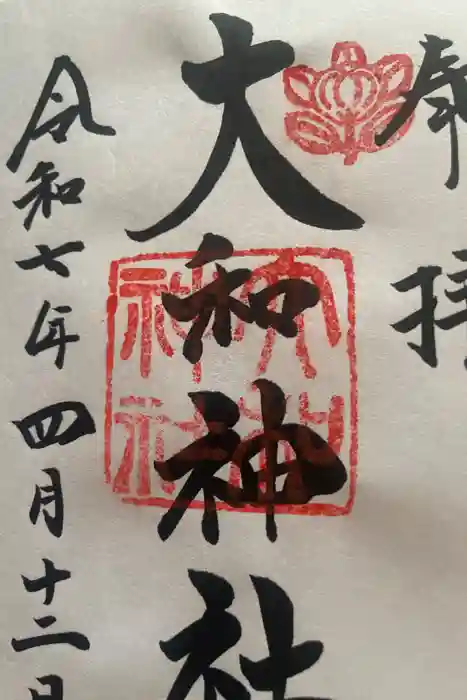 奉拝
大和神社
大和神社
令和七年四月十二日